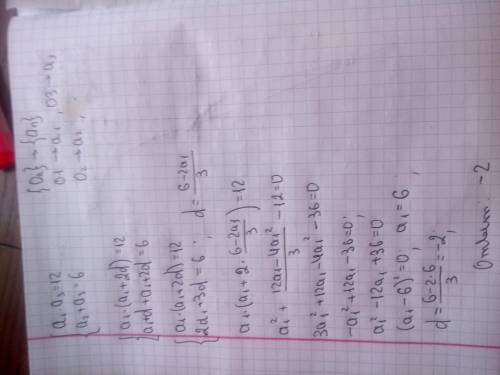 {a₁·a₃=12
{a₂+a₃=6
{aₙ}→{aₙ}
a₁→a₁, a₃→a₃
a₂→a₂,
{a₁·(a₁+2d)=12
{a₁+d+a₁+2d=6
{a₁·(a₁+2d)=12
{2a₁+3d=6 ; d=(6-2a₁)/3
a₁·(a₁+2·(6-2a₁)/3)=12
a₁²+(12a₁-4a₁²)/3-12=0
3a₁²+12a₁-4a₁²-36=0
-a₁²+12a₁-36=0;
a₁²-12a₁+36=0
(a₁-6)²=0; a₁=6,
d=(6-2·6)/3=-2;
Ответ: -2